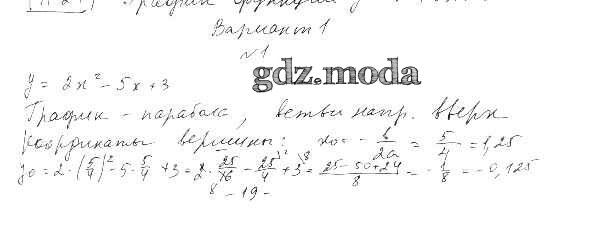 График функции y =
Вариант 1
№1
gdz.moda
y = 2x² - 5x + 3
График - парабола, ветви напр. вверх
Координаты вершины: x₀ = - b/2a = 5/4 = 1,25
y₀ = 2·(5/4)² - 5·5/4 + 3 = 2·25/16 - 25/4 + 3 = (25 - 50 + 24)/8 = - 1/8 = - 0,125
- 19 -